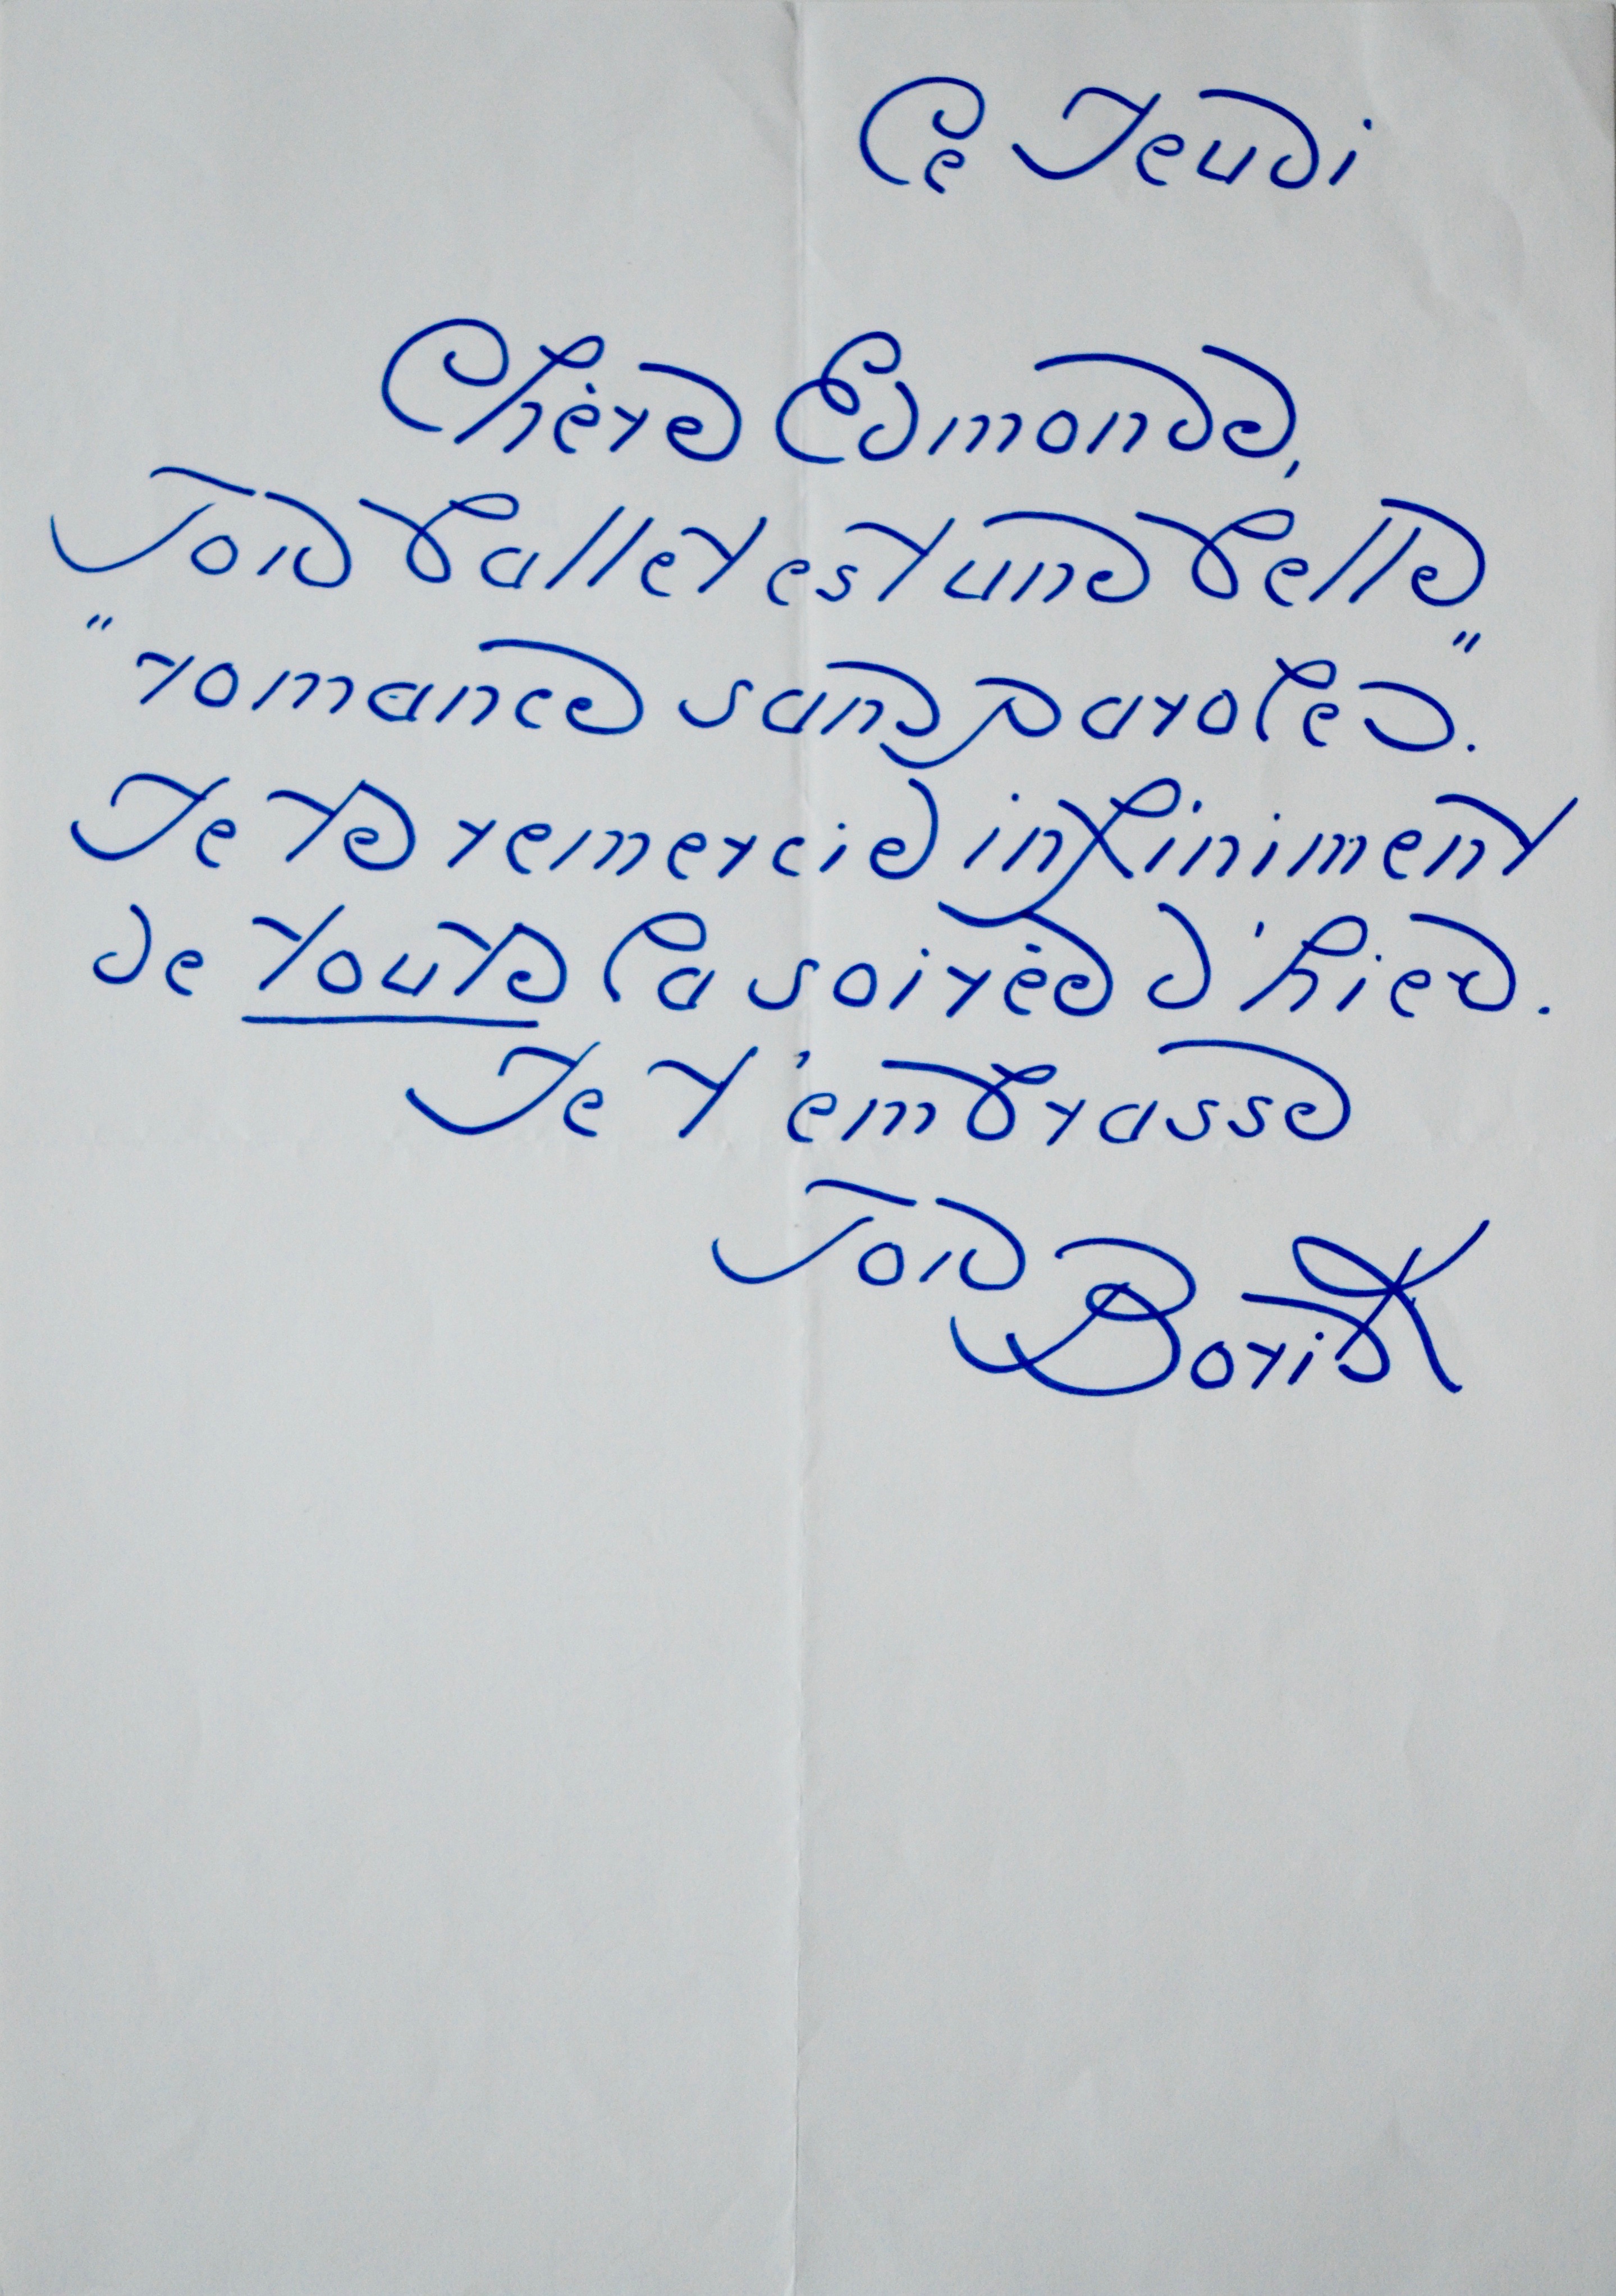 Ce Jeudi
Chère Edmonde,
Ton ballet est une belle
"romance sans paroles".
Je te remercie infiniment
de toute la soirée d'hier.
Je t'embrasse
Ton Boris